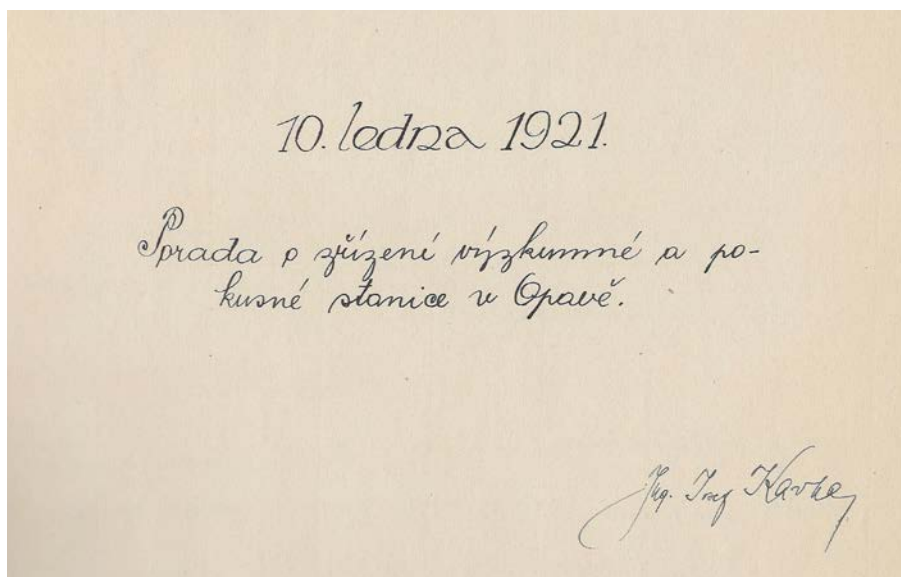 10. ledna 1921.
Porada o zřízení výzkumné a po-
kusné stanice v Opavě.
Ing. Josef Kavka